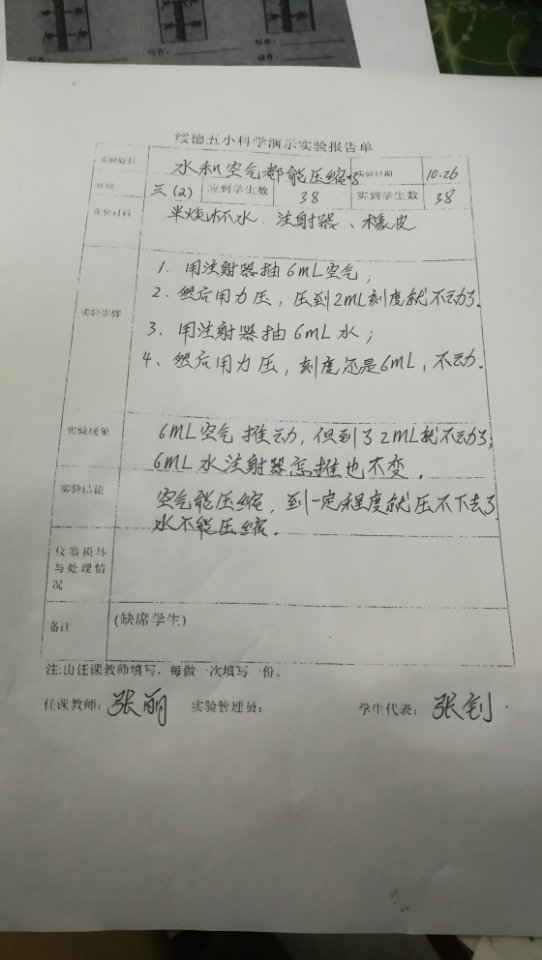 写作:
写作:
读作:
绥德五小科学演示实验报告单
实验题目 水和空气都能压缩吗 实验日期 10.26
班级 三(2) 应到学生数 38 实到学生数 38
实验材料 半烧杯水、注射器、橡皮
1. 用注射器抽6mL空气;
2. 然后用力压,压到2mL刻度就不动了.
实验步骤
3. 用注射器抽6mL水;
4. 然后用力压,刻度还是6mL,不动.
实验现象 6mL空气推动,但到了2mL就不动了;
6mL水注射器怎推也不变.
实验结论 空气能压缩,到一定程度就压不下去了
水不能压缩.
仪器损坏
与处理情
况
备注 (缺席学生)
注:由任课教师填写,每做一次填写一份。
任课教师: 张丽 实验管理员: 学生代表: 张钊